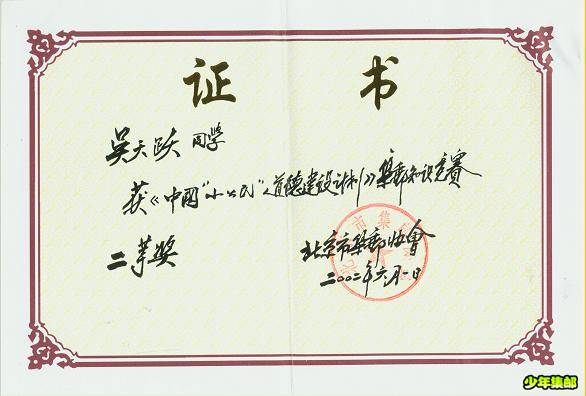 证 书
吴天跃 同学
获《中国"小公民"道德建设计划》集邮知识竞赛
二等奖
北京市集邮协會
二〇〇二年六月一日
少年集邮